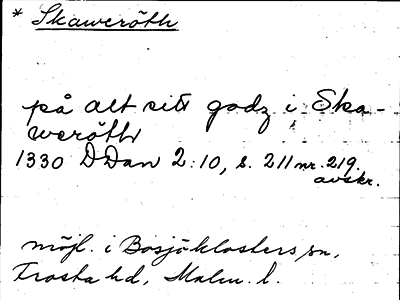 * Skaweröth
på alt sitt godz i Ska-
weröth
1330 DDan 2:10, s. 211 nr. 219.
avskr.
möjl. i Bosjöklosters sn,
Frosta hd, Malm. l.